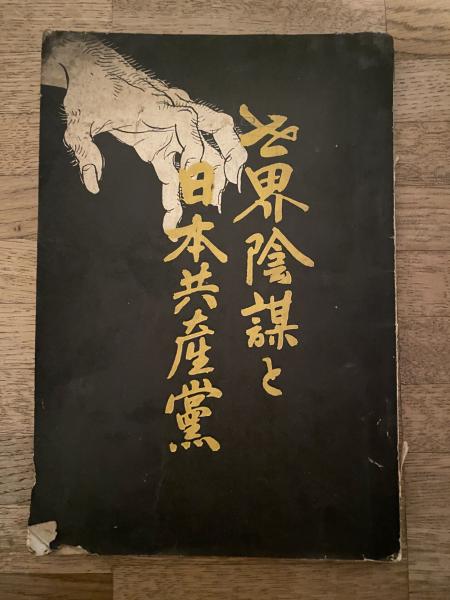 世界陰謀と
日本共産黨